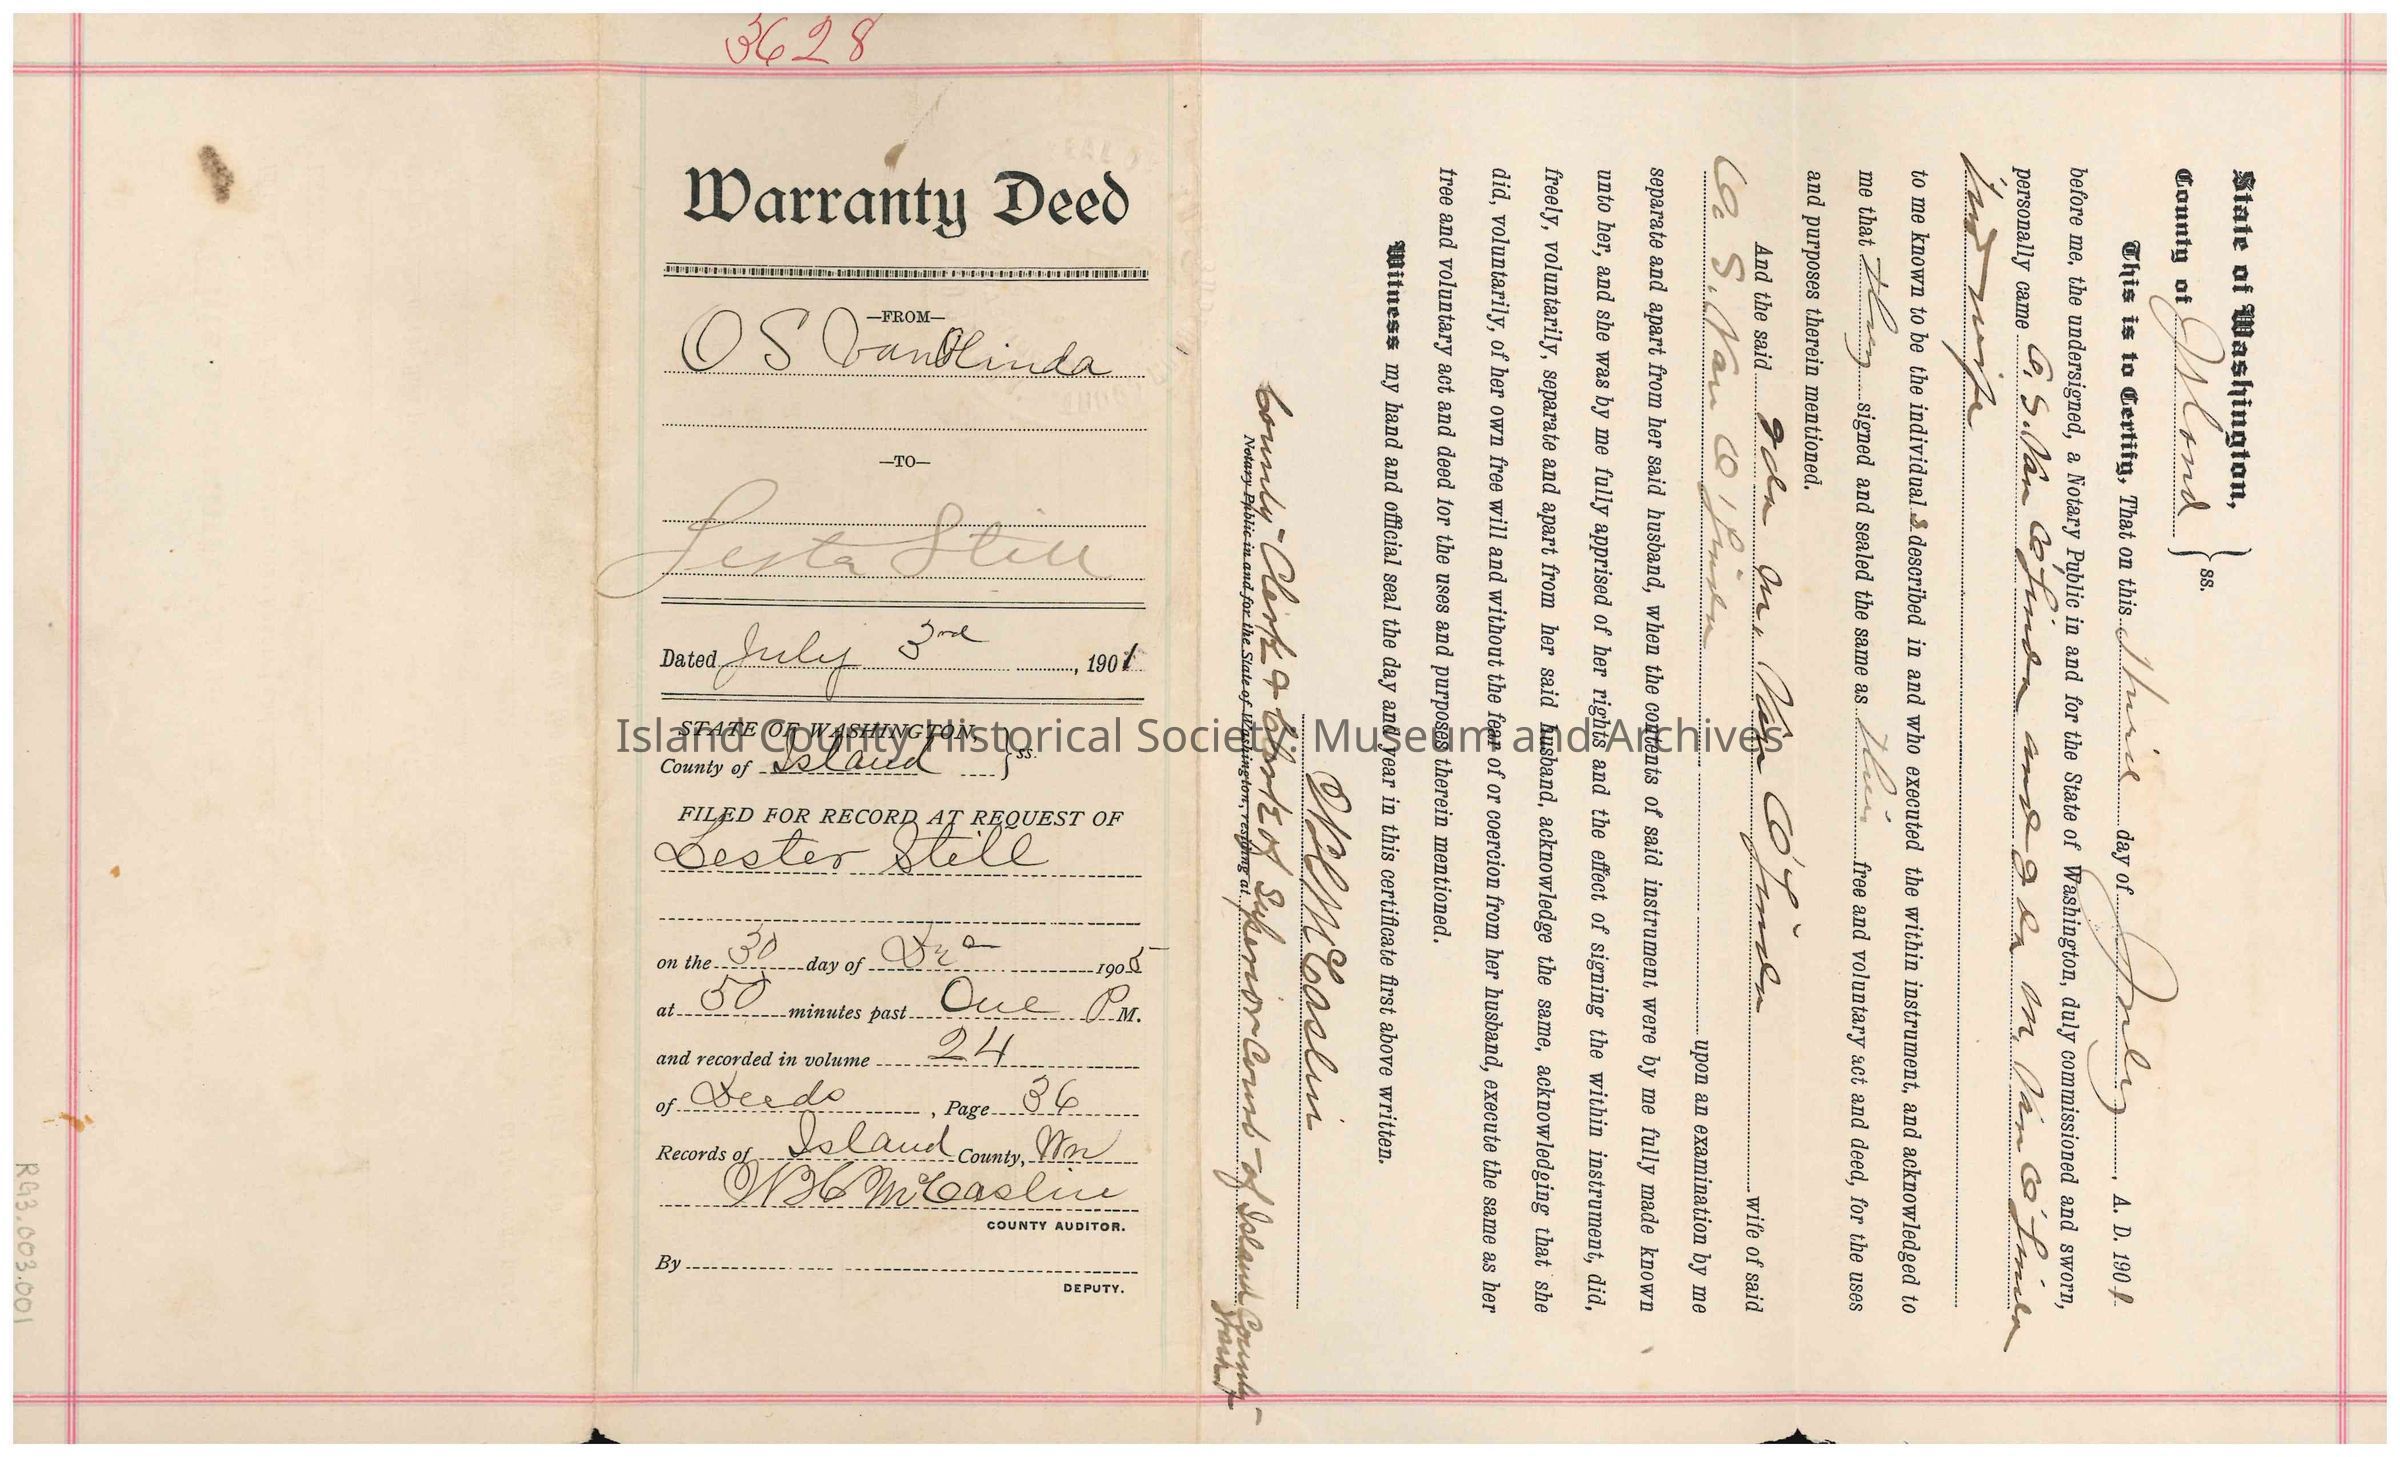 3628
Warranty Deed
—FROM—
O S VanOlinda
—TO—
Lesta Still
Dated July 3rd, 1901
STATE OF WASHINGTON,
County of Island } ss.
FILED FOR RECORD AT REQUEST OF
Lester Still
on the 30 day of Dec 1905
at 50 minutes past One P M.
and recorded in volume 24
of Deeds, Page 36
Records of Island County, Wn
COUNTY AUDITOR.
By
DEPUTY.
State of Washington,
County of Island } ss.
This is to Certify, That on this Third day of July, A. D. 1901
before me, the undersigned, a Notary Public in and for the State of Washington, duly commissioned and sworn,
personally came O. S. Van Olinda and Ada M. Van Olinda
his wife
to me known to be the individual s described in and who executed the within instrument, and acknowledged to
me that they signed and sealed the same as their free and voluntary act and deed, for the uses
and purposes therein mentioned.
And the said Ada M. Van Olinda wife of said
O. S. Van Olinda upon an examination by me
separate and apart from her said husband, when the contents of said instrument were by me fully made known
unto her, and she was by me fully apprised of her rights and the effect of signing the within instrument, did,
freely, voluntarily, separate and apart from her said husband, acknowledge the same, acknowledging that she
did, voluntarily, of her own free will and without the fear of or coercion from her husband, execute the same as her
free and voluntary act and deed for the uses and purposes therein mentioned.
Witness my hand and official seal the day and year in this certificate first above written.
McCaslin
County Clerk & Clerk of Superior Court of Island County
Notary Public in and for the State of Washington, residing at
Island County Historical Society: Museum and Archives
RG3.003.001